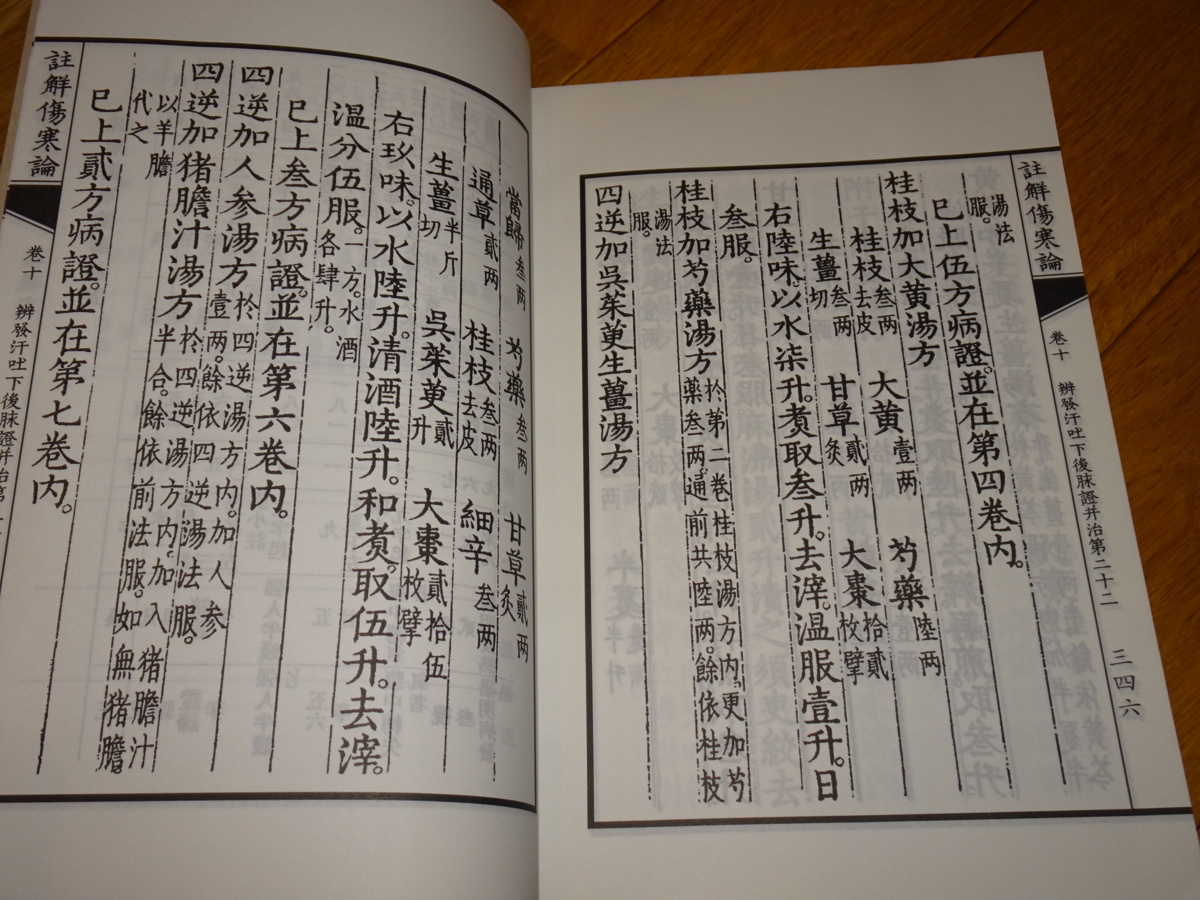 註解傷寒論
卷十　辨發汗吐下後脉證并治第二十二　三四六
湯法
服。
巳上伍方病證。並在第四卷内。
桂枝加大黄湯方
桂枝叁两去皮　大黄壹两　芍藥陸两
生薑叁两切　甘草貳两灸　大棗拾貳枚擘
右陸味。以水柒升。煑取叁升。去滓。温服壹升。日
叁服。
桂枝加芍藥湯方扵第二卷桂枝湯方内。更加芍
藥叁两。通前共陸两。餘依桂枝
湯法
服。
四逆加吳茱萸生薑湯方
當歸叁两　芍藥叁两　甘草貳两灸
通草貳两　桂枝叁两去皮　細辛叁两
生薑半斤切　吳茱萸貳升　大棗貳拾伍枚擘
右玖味。以水陸升。清酒陸升。和煑。取伍升。去滓。
温分伍服。一方。水酒各肆升。
巳上叁方病證。並在第六卷内。
四逆加人参湯方扵四逆湯方内。加人参
壹两。餘依四逆湯法服。
四逆加猪膽汁湯方扵四逆湯方内。加入猪膽汁
半合。餘依前法服。如無猪膽。
以羊膽
代之
巳上貳方病證。並在第七卷内。
註解傷寒論
卷十　辨發汗吐下後脉證并治第